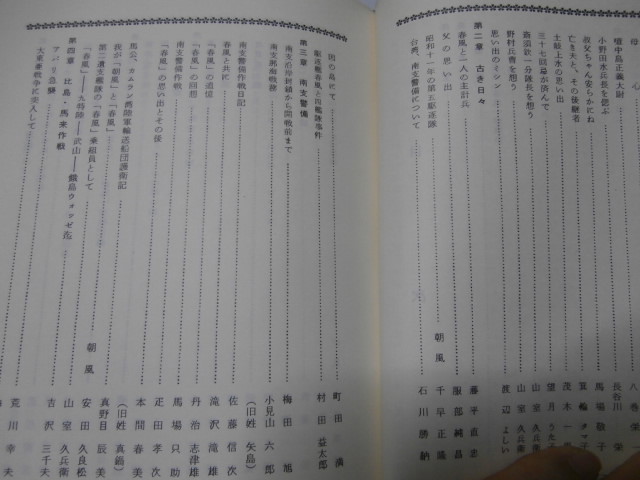 母心 八巻栄一
長谷川栄
壇中島正義大尉 馬場敬子
小野田水兵長を偲ぶ 箕輪タマ
叔父ちゃん安らかにね 茂木一
亡き夫と、その後継者 望月うた
土岐上水の思い出 山室久兵衛
三十七回忌が済んで 山室久兵衛
斎須欽一分隊長を想う 渡辺よしい
野村兵曹を想う
思い出のミシン
第二章 古き日々
春風と二人の主計兵 藤平直忠
父の思い出 服部純昌
昭和十一年の第五駆逐隊 朝風 千早正隆
台湾、南支警備について 石川勝納
因の島にて 町田満
第三章 南支警備
駆逐艦春風と四艦隊事件 村田益太郎
南支沿岸封鎖から開戦前まで 梅田旭
南支那海戦務 小見山六郎
(旧姓矢島)
南支警備作戦日記 佐藤信次
春風と共に 滝沢滝雄
「春風」の追憶 丹治志津雄
「春風」の回想 馬場只助
南支警備作戦 疋田孝次
「春風」の思い出とその後 本間春美
(旧姓真鍋)
馬公、カムラン湾陸軍輸送船団護衛記 真野目辰美
我が「朝風」と「春風」 朝風 安田久良松
第二遣支艦隊の「春風」乗組員として 山室久兵衛
「春風」――九特陸――武山――饒島ウォッゼ迄 古沢三千夫
第四章 比島・馬来作戦
アパリ急襲
大東亜戦争に突入して 荒川幸夫